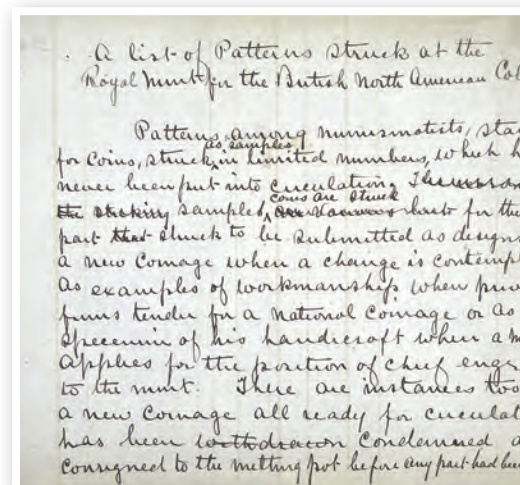 A list of Patterns struck at the
Royal Mint for the British North American Col
Patterns among numismatists, sta
as samples
for coins, struck in limited numbers, which h
never been put into circulation.
coins are struck
the striking samples, for the
part that struck to be submitted as designs
a new coinage when a change is contempl
as examples of workmanship when priv
firms tender for a national coinage or as
specimen of his handicraft when a m
applies for the position of chief engr
to the mint. There are instances too
a new coinage all ready for circulat
has been withdrawn condemned a
consigned to the melting pot before any part had been